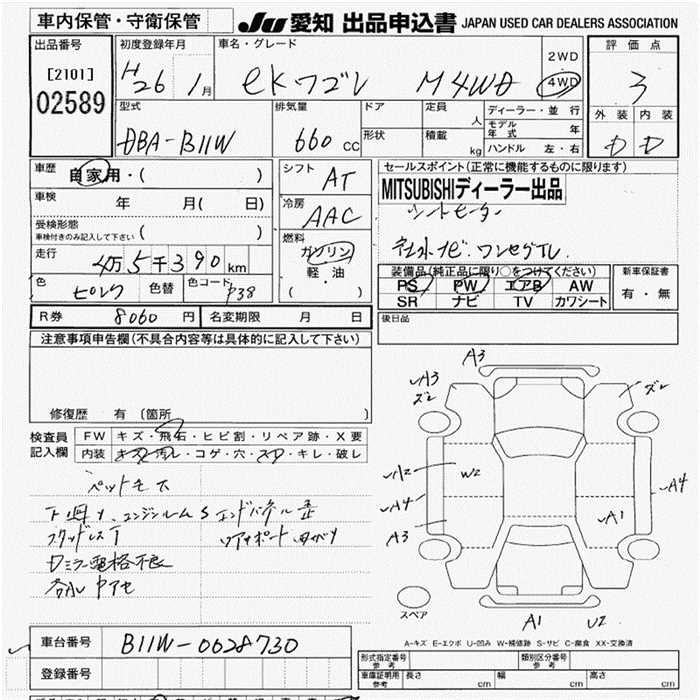 車内保管・守衛保管 JU 愛知 出品申込書 JAPAN USED CAR DEALERS ASSOCIATION
出品番号 [2101] 02589
初度登録年月 H26 1月
車名・グレード eKワゴン M4WD 2WD 4WD
評価点 3
外装 D 内装 D
型式 DBA-B11W
排気量 660cc
ドア 形状
定員 人 積載 kg
ディーラー・並行
モデル年式 年
ハンドル 左・右
車歴 自家用・( )
車検 年 月( 日)
受検形態 車検付きのみ記入して下さい ( )
走行 4万5千390km
色 ピンク 色替 色コード P38
シフト AT
冷房 AAC
燃料 ガソリン 軽・油 ( )
セールスポイント(正常に機能するものに限ります)
MITSUBISHIディーラー出品
シートヒーター
社外ナビ.ワンセグTV
装備品(純正品に限り○をつけてください)
PS PW エアB AW
SR ナビ TV カワシート
新車保証書 有・無
R券 8060円 名変期限 月 日
後日品
注意事項申告欄(不具合内容等は具体的に記入して下さい)
修復歴 有 [箇所 ]
検査員記入欄
FW キズ・飛石・ヒビ割・リペア跡・X要
内装 キズ・汚レ・コゲ・穴・スレ・キレ・破レ
ペットモ大
下廻サ、エンジンルームS エンドパネル歪
スタッドレスT リアサポート曲がり
Dミラー電格不良
各小キズ
A3
A3
ズレ
ズレ
A2 W2
A4 A4
A3 A1
スペア
A1 U2
A-キズ E-エクボ U-凹み W-補修跡 S-サビ C-腐食 XX-交換済
車台番号 B11W-0028730
登録番号
形式指定番号 参考 類別区分番号 参考
車庫証明用 参考 長さ cm 幅 cm 高さ cm